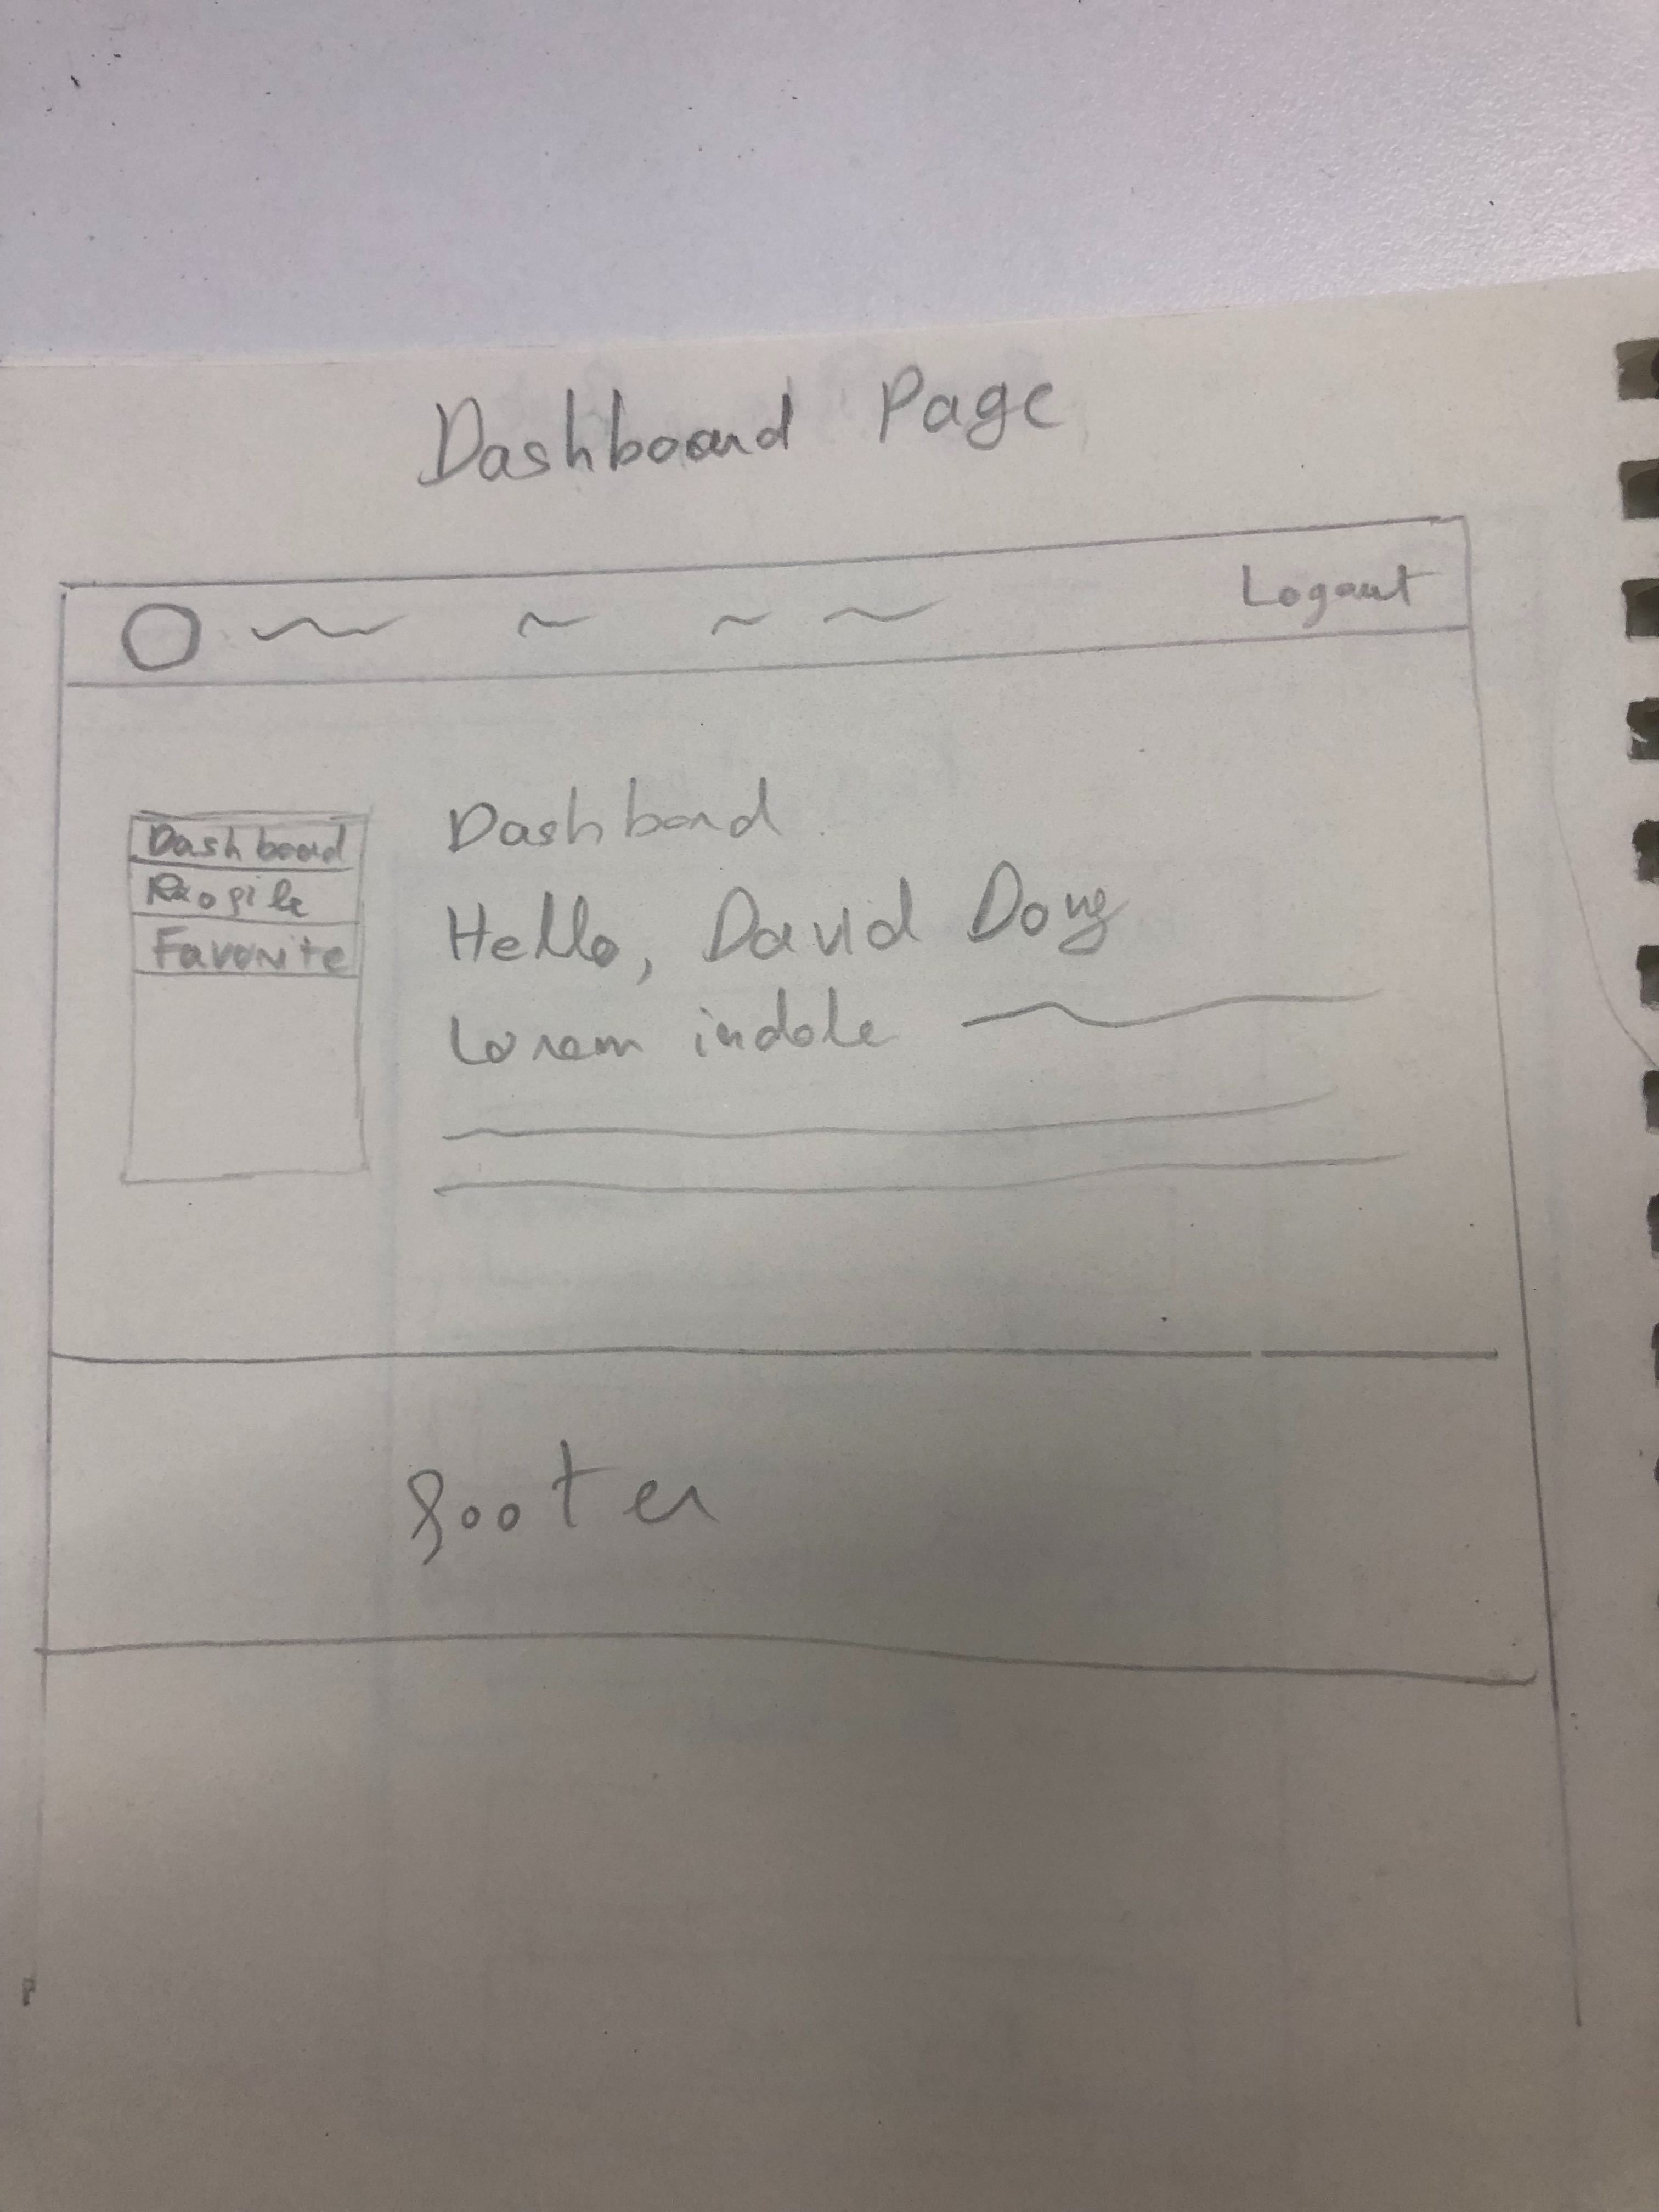 Dashboard Page
Logout
Dashboard
Profile
Favorite
Dashboard
Hello, David Dong
Lorem indole
footer